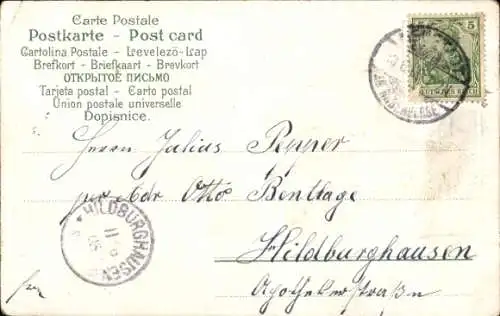 Carte Postale
Postkarte - Post card
Cartolina Postale - Levelező-Lap
Brefkort - Briefkaart - Brevkort
ОТКРЫТОЕ ПИСЬМО
Tarjeta postal - Carto postal
Union postale universelle
Dopisnice.
5
DEUTSCHES REICH
Herrn Julius Pepper
per Adr Otto Benttage
HILDBURGHAUSEN
Hildburghausen
Apothekerstraße